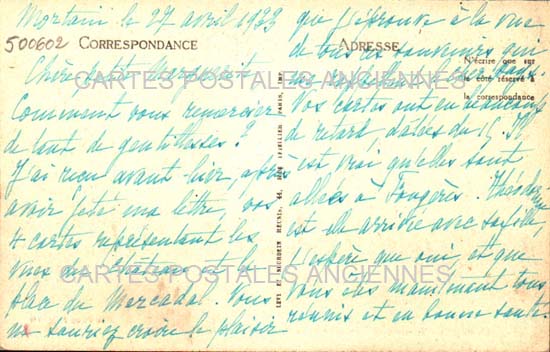 Mortain le 27 avril 1923
500602 CORRESPONDANCE
Chère petite
Comment vous remercier
de tant de gentillesses ?
J'ai reçu avant-hier, après
avoir jeté ma lettre, vos
4 cartes représentant les
vues du Château et la
place du Mercadal. Vous
ne sauriez croire le plaisir
que j'éprouve à la vue
de tous ces souvenirs qui
ADRESSE
N'écrire que sur
le côté réservé à
la correspondance
Vos cartes ont eu beaucoup
de retard, datées du 15. Il
est vrai qu'elles sont
allées à Fougères. Théodorine
est-elle arrivée avec sa fille,
j'espère que oui, et que
vous êtes maintenant tous
réunis et en bonne santé.
LEVY ET NEURDEIN REUNIS, 44, PARIS, IMP.
CARTES POSTALES ANCIENNES
CARTES POSTALES ANCIENNES